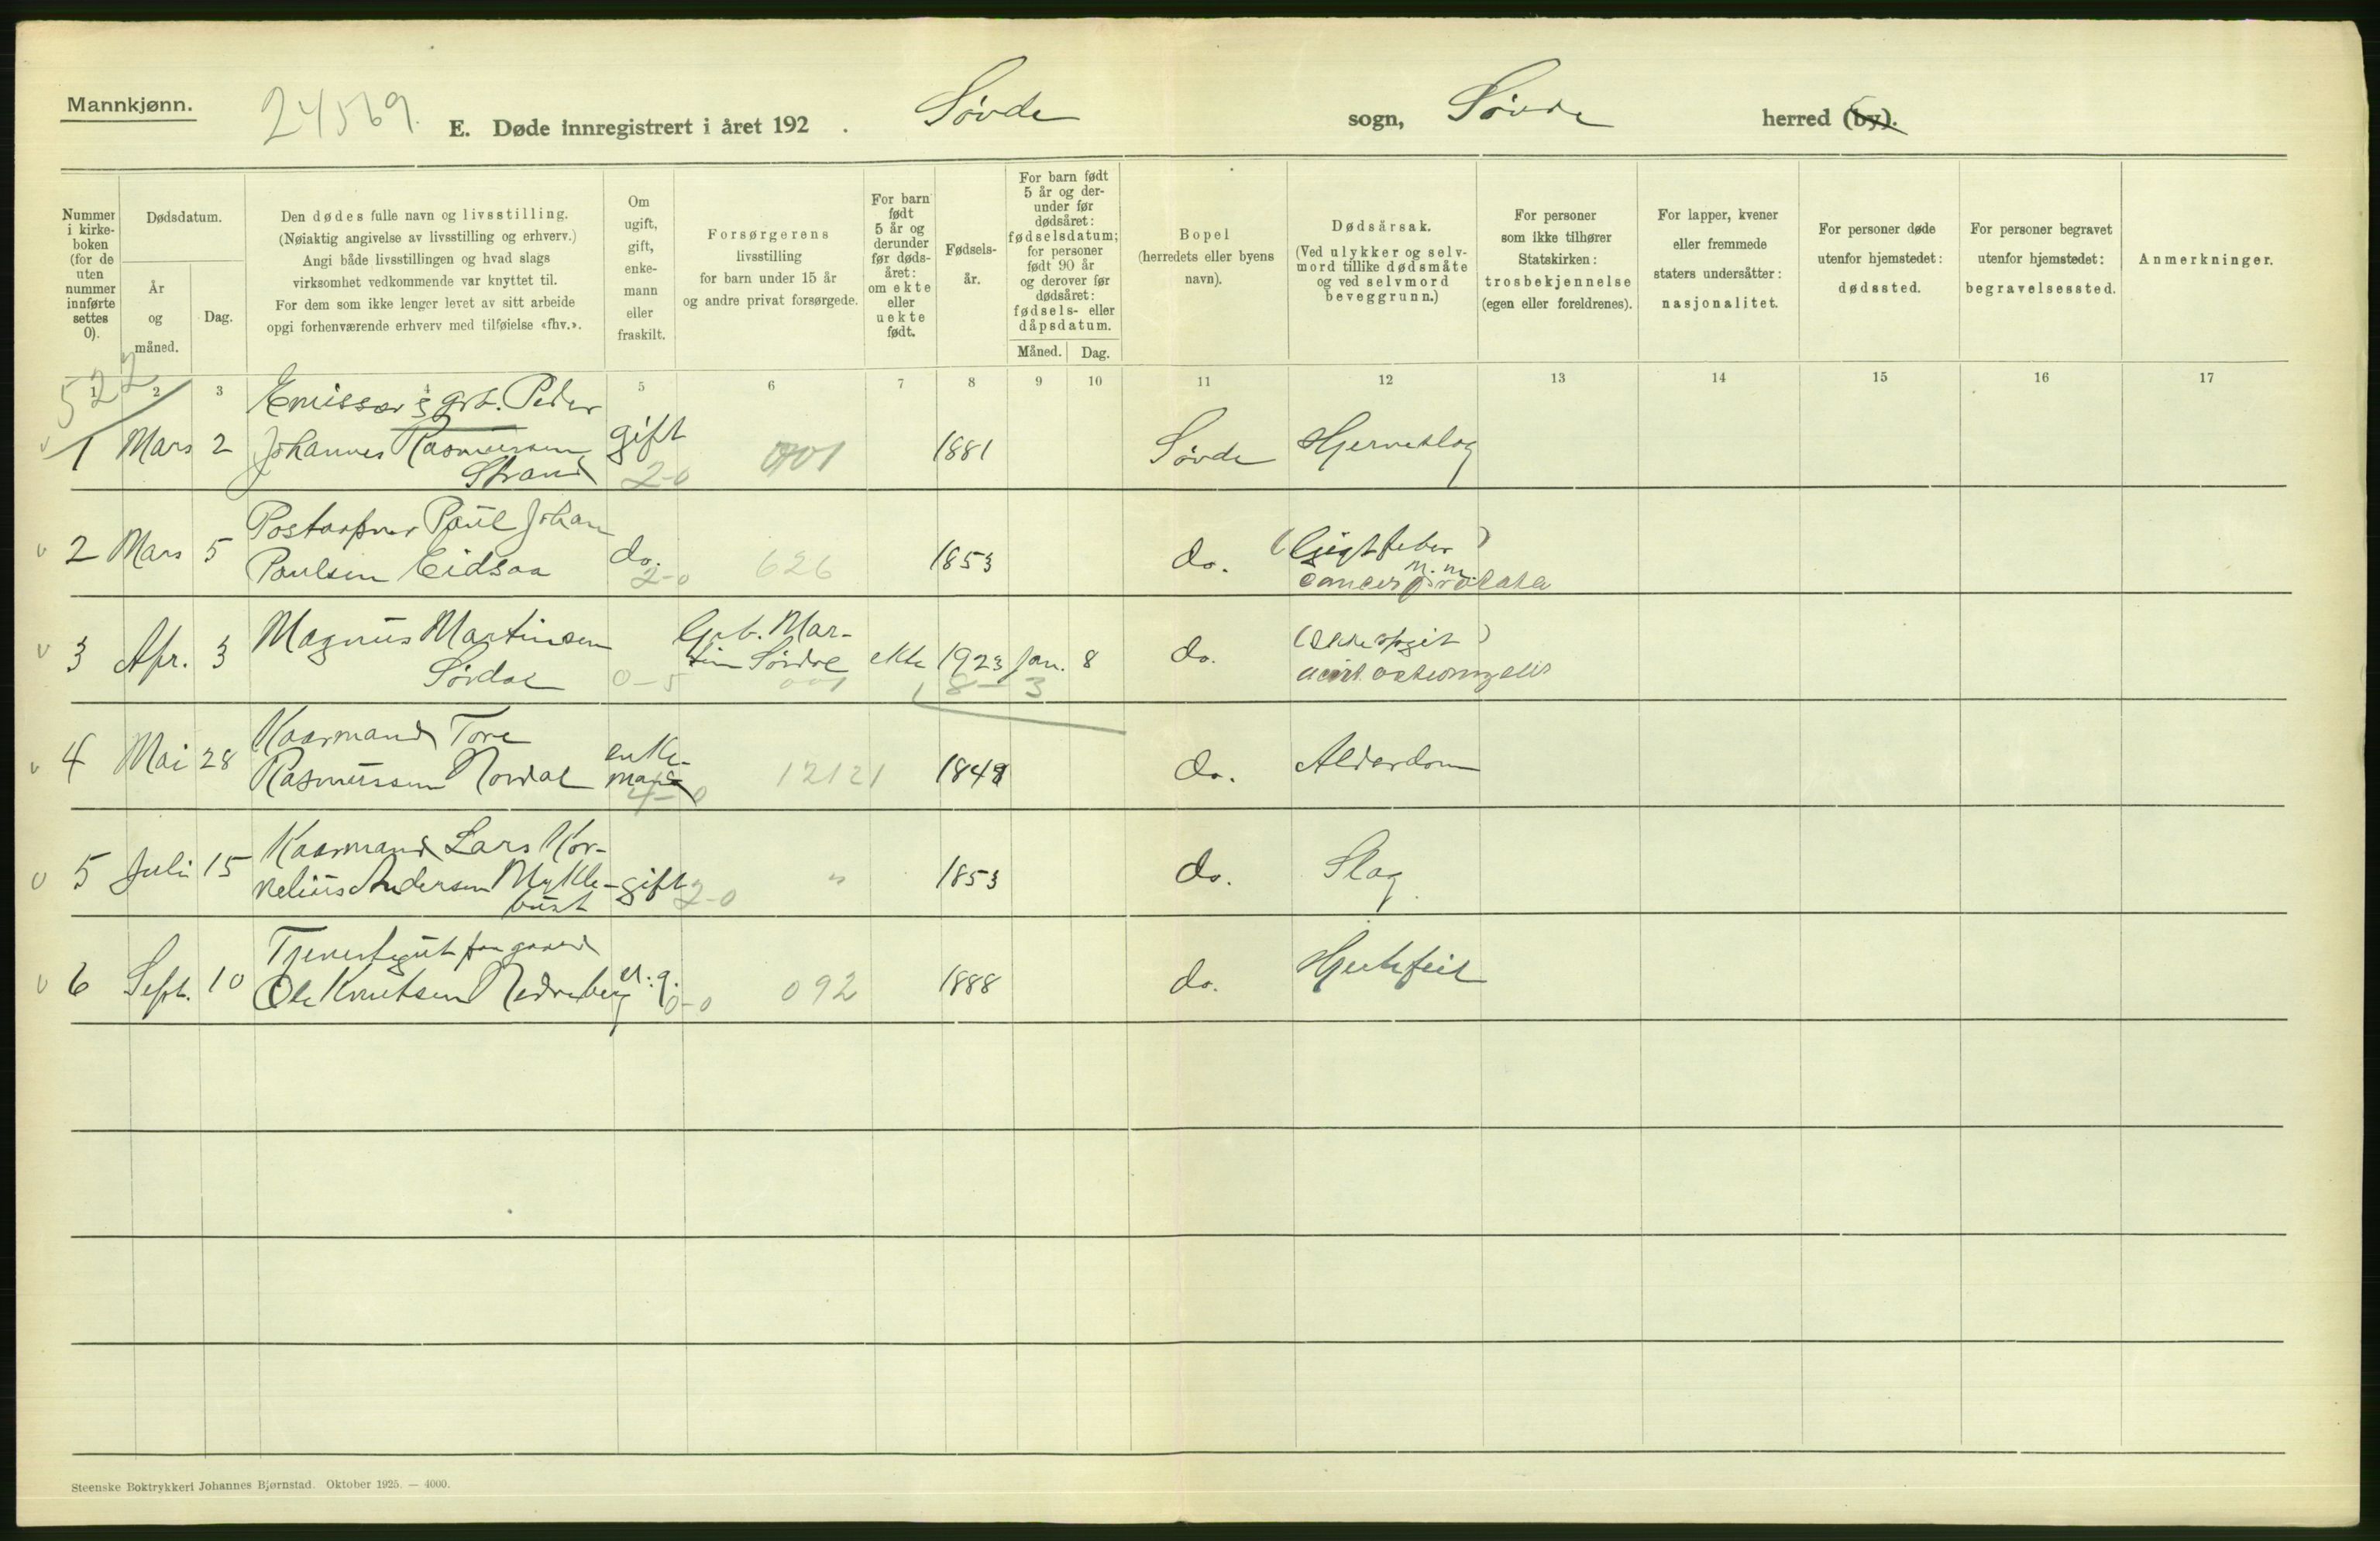 Mannkjønn.
24569.
E. Døde innregistrert i året 192 . Søvde sogn, Søvde herred (by).
Nummer i kirke-boken (for de uten nummer innførte settes 0).
Dødsdatum.
År og måned.
Dag.
Den dødes fulle navn og livsstilling.
(Nøiaktig angivelse av livsstilling og erhverv.)
Angi både livsstillingen og hvad slags
virksomhet vedkommende var knyttet til.
For dem som ikke lenger levet av sitt arbeide
opgi forhenværende erhverv med tilføielse «fhv.».
Om ugift, gift, enke-mann eller fraskilt.
Forsørgerens
livsstilling
for barn under 15 år
og andre privat forsørgede.
For barn født 5 år og derunder før døds-året: om ekte eller uekte født.
Fødsels-år.
For barn født 5 år og der-under før dødsåret: fødselsdatum; for personer født 90 år og derover før dødsåret: fødsels- eller dåpsdatum.
Måned. Dag.
Bopel
(herredets eller byens
navn).
Dødsårsak.
(Ved ulykker og selv-
mord tillike dødsmåte
og ved selvmord
beveggrunn.)
For personer
som ikke tilhører
Statskirken:
trosbekjennelse
(egen eller foreldrenes).
For lapper, kvener
eller fremmede
staters undersåtter:
nasjonalitet.
For personer døde
utenfor hjemstedet:
dødssted.
For personer begravet
utenfor hjemstedet:
begravelsessted.
Anmerkninger.
522
1 2 3 4 5 6 7 8 9 10 11 12 13 14 15 16 17
Emissær & grb. Peder
1 Mars 2 Johannes Rasmussen gift 001 1881 Søvde Hjerneslag
Strand 2-0
Postaapner Paul Johan
2 Mars 5 Paulsen Eidsaa do. 2-0 626 1853 do. (Gigtfeber m.m.)
cancer prostata
3 Apr. 3 Magnus Martinsen Grb. Mar-
tin Sørdal ekte 1923 Jan. 8 do. (Ikke opgit)
Sørdal 0-5 001 8-3 acut. osteomyelit
Kaarmand Tore
4 Mai 28 Rasmussen Nordal enke-
mand 4-0 12121 1849 do. Alderdom
Kaarmand Lars Kor-
5 Juli 15 nelius Andersen Mykle- gift 2-0 " 1853 do. Slag.
bust
Tjenestegut paa gaard
6 Sept. 10 Ole Knutsen Nedreberg u. g. 0-0 092 1888 do. Hjertefeil
Steenske Boktrykkeri Johannes Bjørnstad. Oktober 1925. — 4000.